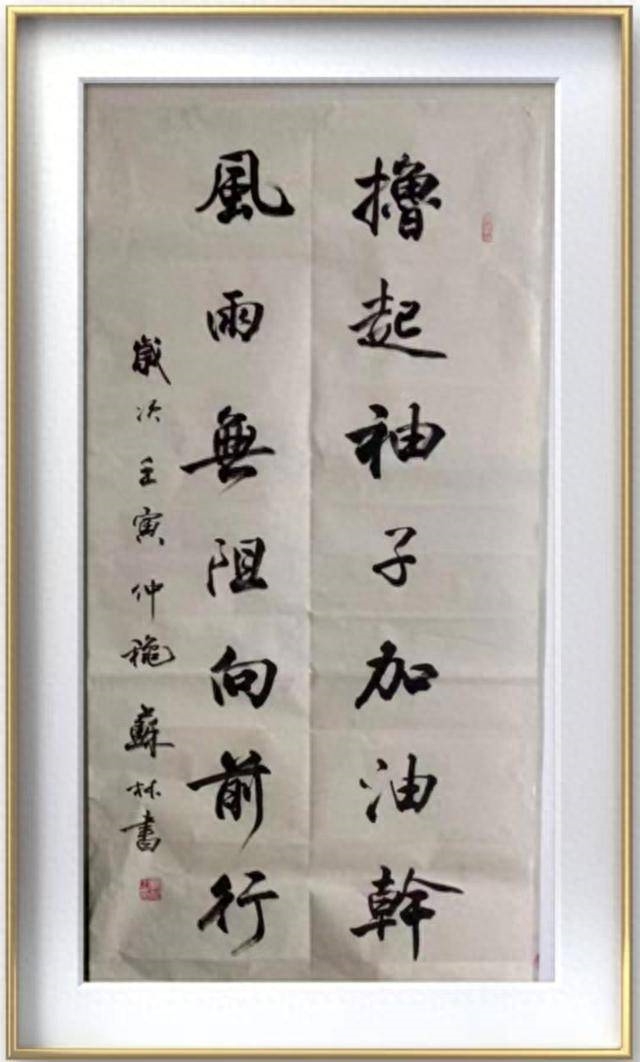 擼起袖子加油幹
風雨無阻向前行
歲次壬寅仲穐蘇林書